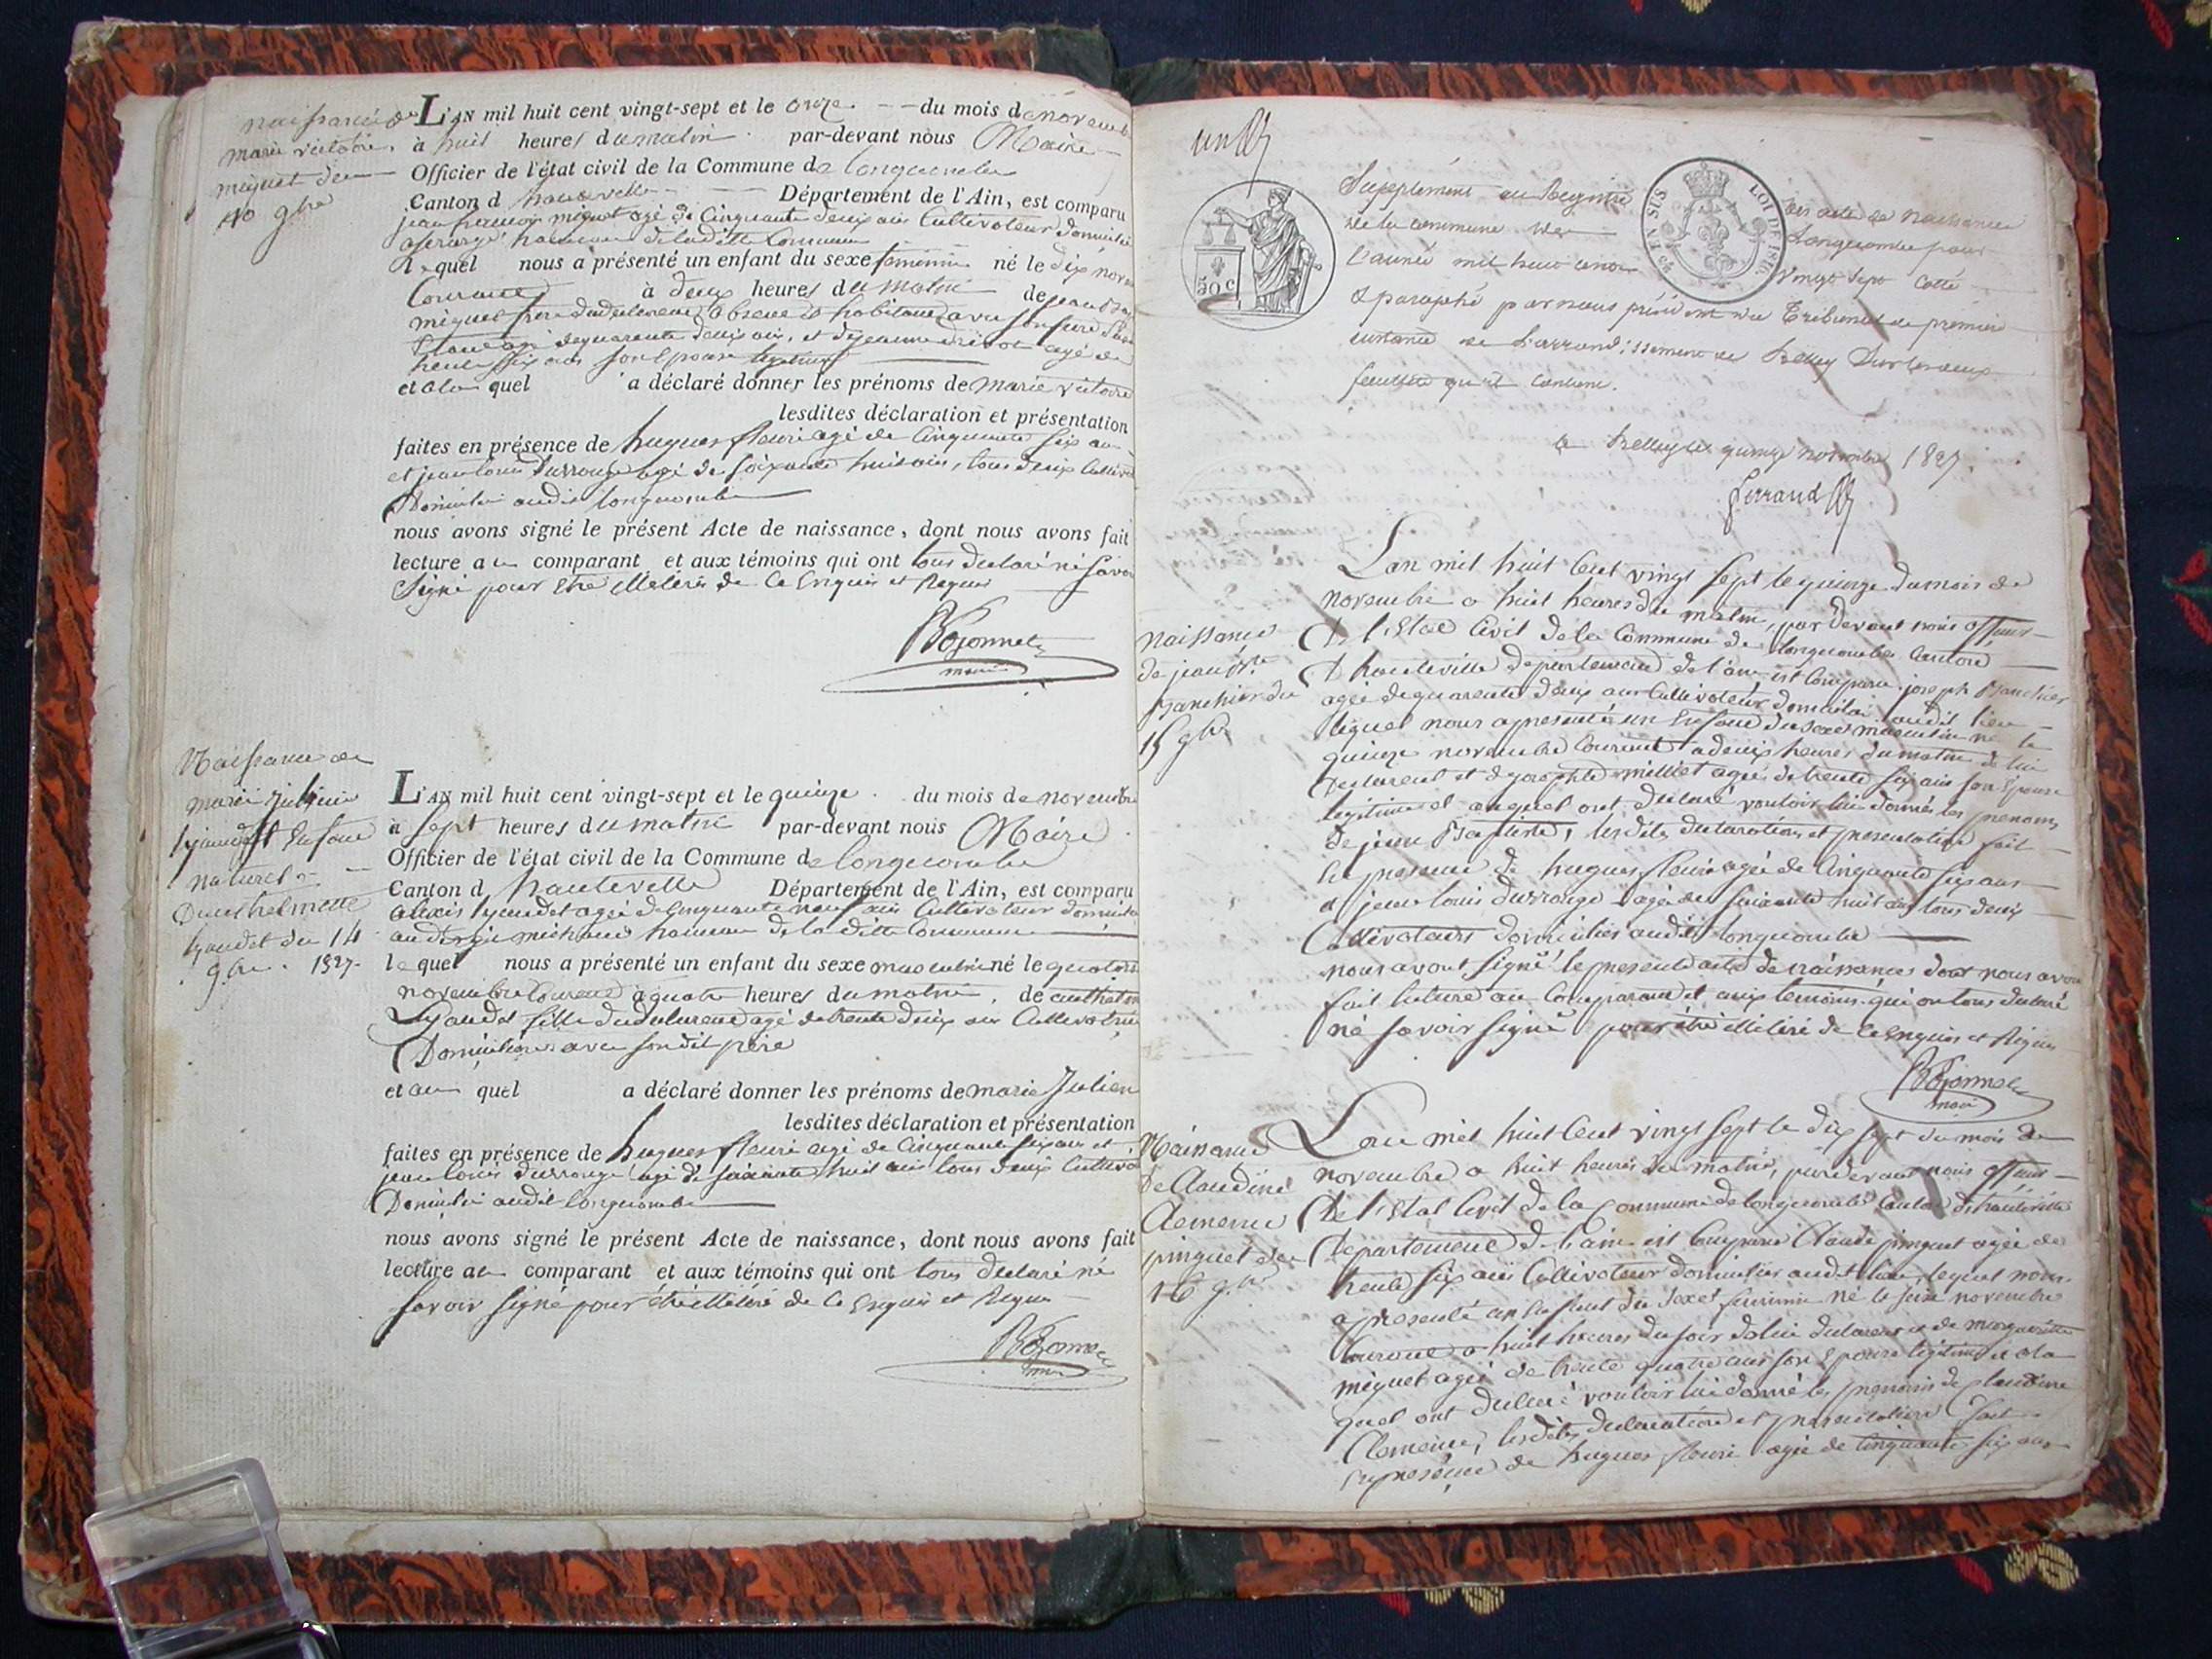 naissance de
marie victoire
miguet du
10 9bre
L'AN mil huit cent vingt-sept et le onze du mois de novembre
à huit heures du matin par-devant nous Maire
Officier de l'état civil de la Commune de longecombe
Canton d hauteville Département de l'Ain, est comparu
jean françois miguet agé de Cinquante deux ans Cultivateur domicilié
hameau de la ditte Commune
lequel nous a présenté un enfant du sexe feminin né le dix novem
Courant à deux heures du matin de jean
miguet frere du declarant absent habitant avec son frere
agé de quarante deux ans, et de jeanne agé de
trente six ans son Epouse legitime
et a la quel a déclaré donner les prénoms de marie victoire
lesdites déclaration et présentation
faites en présence de hugues fleuri agé de Cinquante six ans
et jean louis durrouge agé de soixante huit ans, tous deux Cultiva
Domicilié audit longecombe
nous avons signé le présent Acte de naissance, dont nous avons fait
lecture au comparant et aux témoins qui ont tous declaré né savoir
Signé pour Etre illeteré de Ce Enquis et Requis
maire
Naissance de
marie julien
lyaudet Enfant
naturel
lyaudet du 14
9bre. 1827.
L'AN mil huit cent vingt-sept et le quinze du mois de novembre
à sept heures du matin par-devant nous Maire
Officier de l'état civil de la Commune de longecombe
Canton d hauteville Département de l'Ain, est comparu
alexis lyaudet agée de Cinquante neuf ans Cultivateur domicilié
hameau de la ditte Commune
lequel nous a présenté un enfant du sexe masculin né le quatorze
novembre Courant à quatre heures du matin, de
Lyaudet fille du declarant agé de trente deux ans Cultivatrice
Domiciliée avec son dit père
et au quel a déclaré donner les prénoms de marie Julien
lesdites déclaration et présentation
faites en présence de hugues fleuri agé de Cinquante six ans et
jean louis durrouge agé de soixante huit ans tous deux Cultiva
Domicilié audit longecombe
nous avons signé le présent Acte de naissance, dont nous avons fait
lecture au comparant et aux témoins qui ont tous declaré né
savoir signé pour étre illeteré de Ce Enquis et Requis
maire
un
50 c
Supplément au Registre des actes de naissance
de la commune de Longecombe pour
l'année mil huit cent Vingt Sept Cotté
& paraphé par nous président du Tribunal de première
instance de l'arrondissement de Belley Sur les deux
feuillets qu'il contient.
a Belley le quinze novembre 1827.
Ferrand
naissance
de jean Bte
du
15 9bre
L'an mil huit Cent vingt sept le quinze du mois de
novembre a huit heures du matin, par devant nous officier
de l'Etat Civil de la Commune de longecombe Canton
d hauteville departement de l'ain est Comparu joseph
agée de quarante deux ans Cultivateur domicilié audit lieu
lequel nous a presenté un Enfant du sexe masculin né le
quinze novembre Courant a deux heures du matin de lui
declarent et de josephte milliet agée de trente six ans son Epouse
legitime et auquel ont declaré vouloir lui donner les prenoms
de jean Baptiste, les dites declarations et presentation fait
En presence de hugues fleuri agée de Cinquante six ans
et jean louis durrouge agée de soixante huit ans tous deux
Cultivateurs domiciliés audit longecombe
nous avont signé le presente acte de naissance dont nous avons
fait lecture au Comparant et aux temoins qui on tous declaré
né savoir signé pour étre illeteré de Ce enquis et Requis
maire
Naissance
de Claudine
Clemence
pinguet du
16 9bre
L'an mil huit Cent vingt sept le dix sept du mois de
novembre a huit heures du matin, par devant nous officier
de l'Etat Civil de la Commune de longecombe Canton d hauteville
departement de l'ain est Comparu Claude pinguet agée de
trente six ans Cultivateur domicilié audit lieu, lequel nous
a presenté un Enfant du Sexe feminin né le seize novembre
Courant a huit heures du soir de lui declarent et de marguerite
miguet agée de trente quatre ans son Epouse legitime et a la
quel ont declaré vouloir lui donné les prenoms de Claudine
Clemence, les dites declaration et presentation fait
En presence de hugues fleuri agée de Cinquante six ans